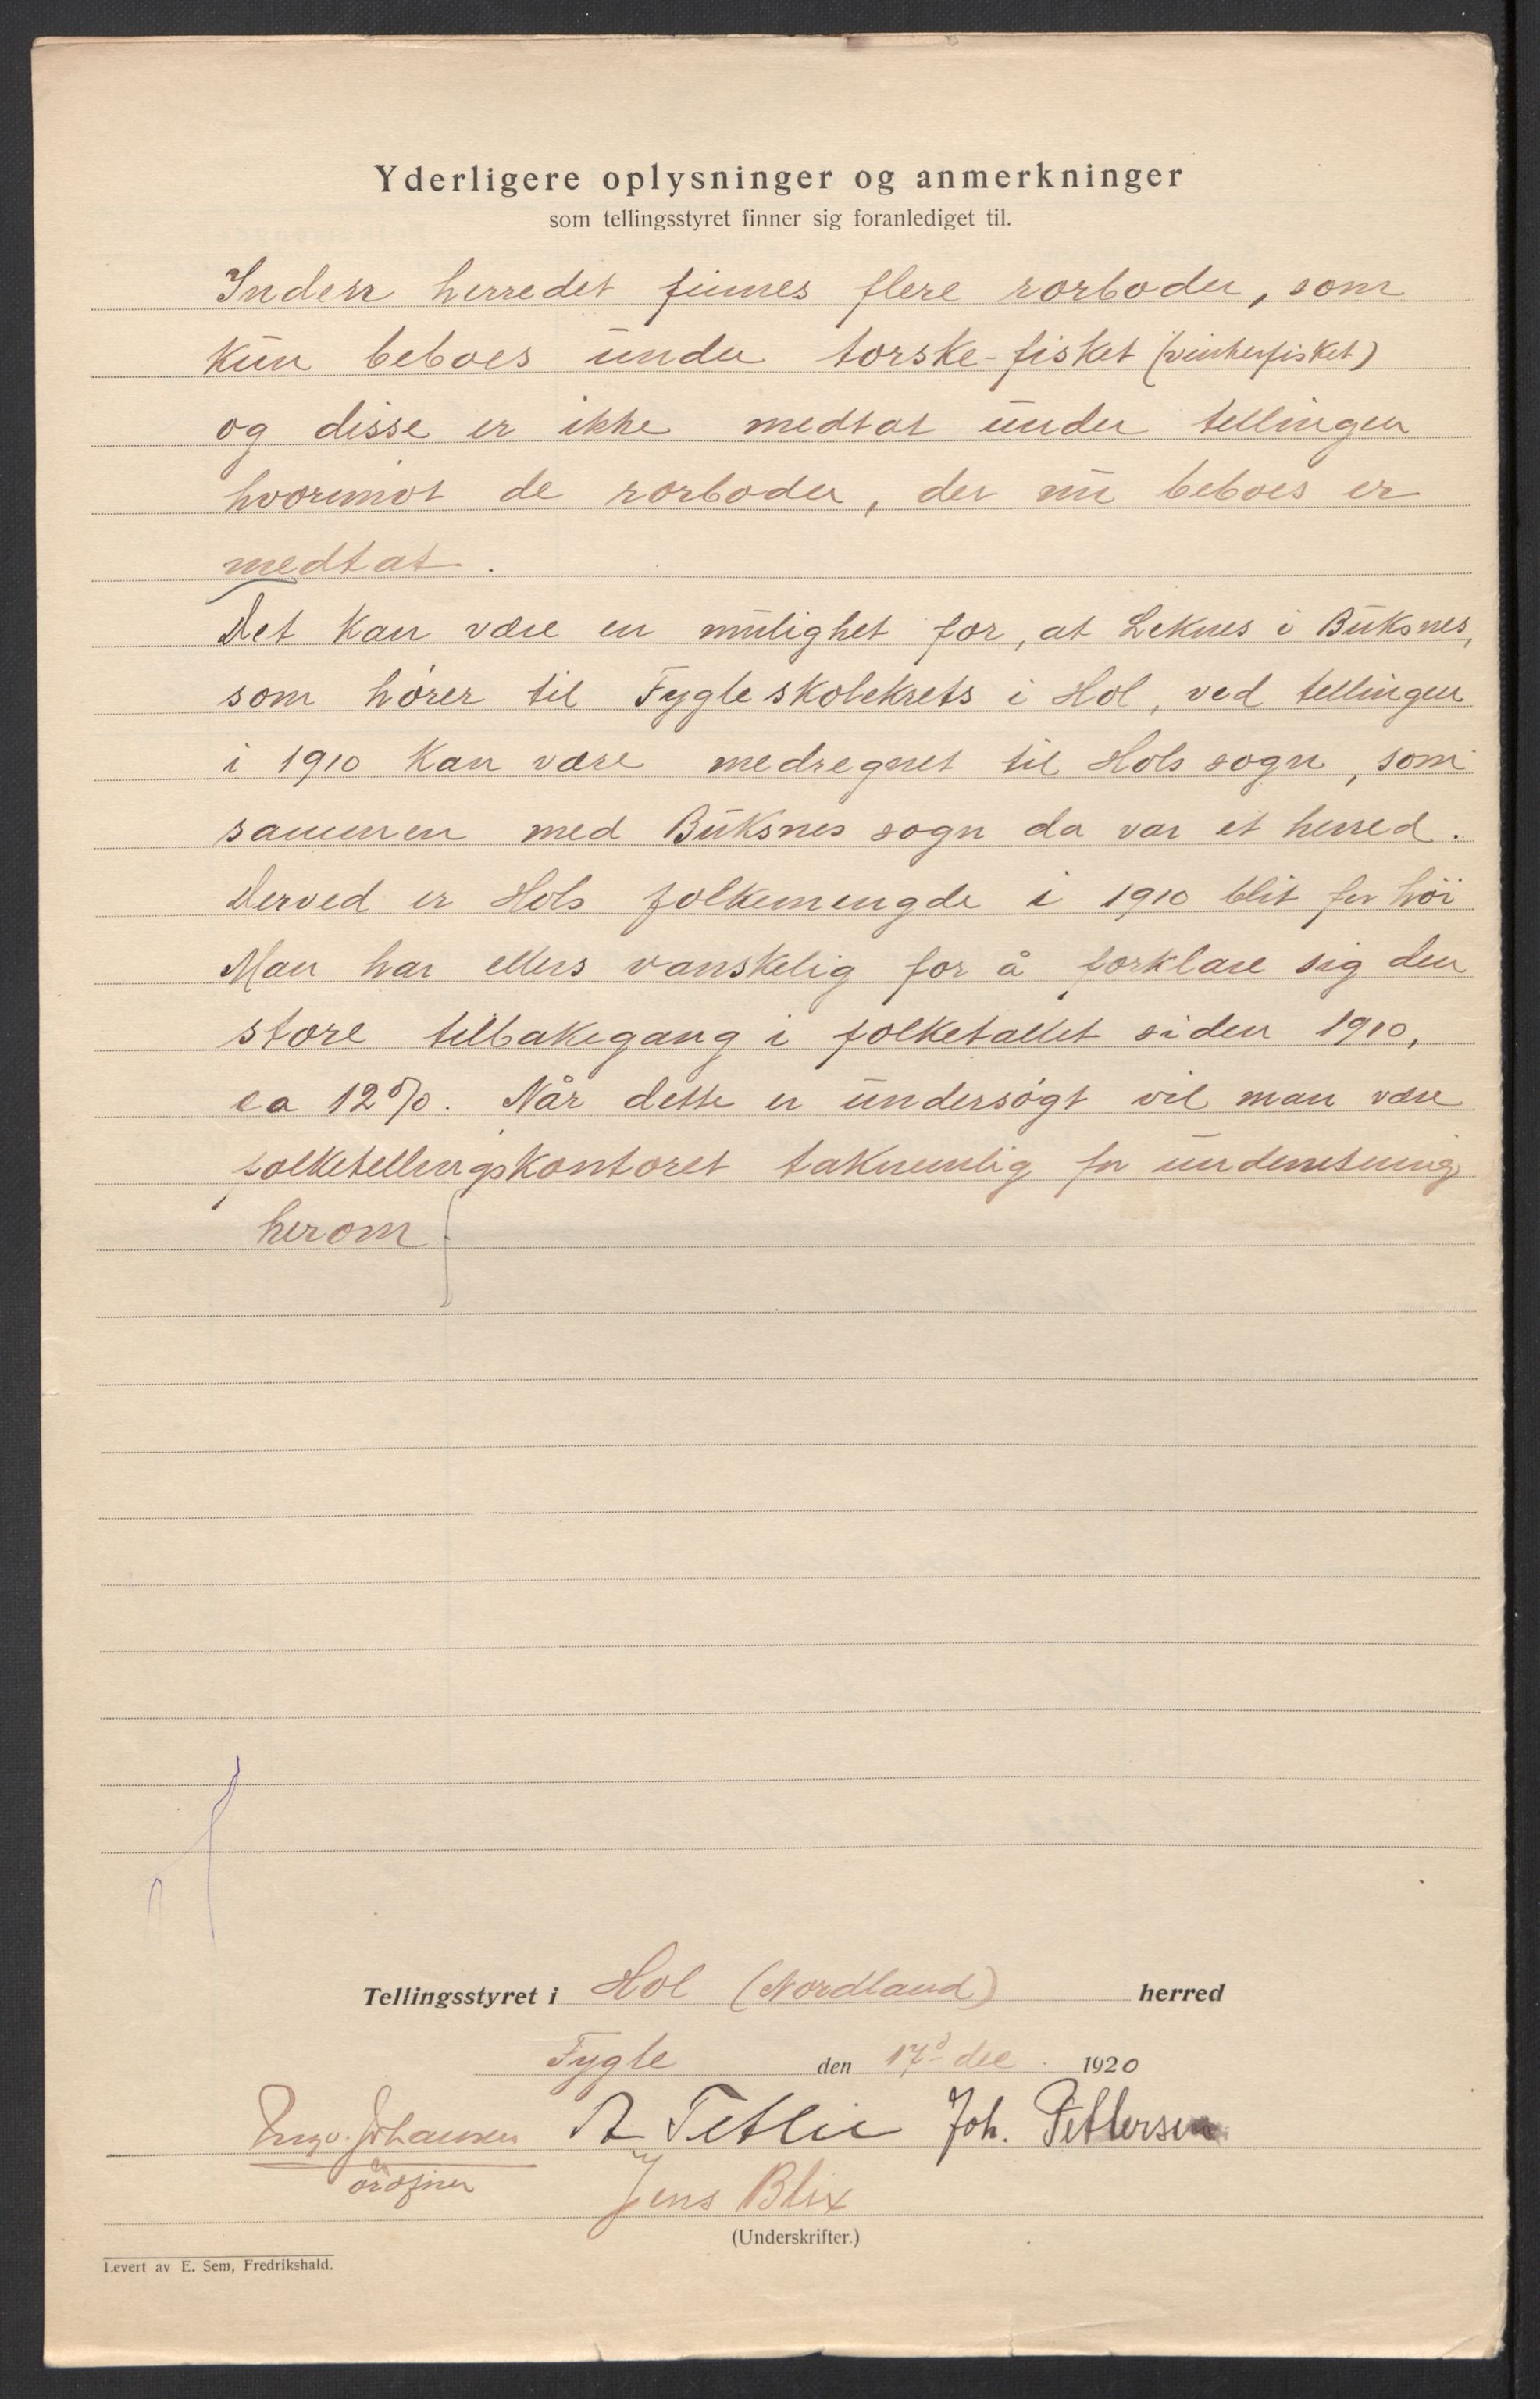 Yderligere oplysninger og anmerkninger
som tellingsstyret finner sig foranlediget til.
Inden herredet finnes flere rorboder, som
kun beboes under torske-fisket (vinterfisket)
og disse er ikke medtat under tellingen
hvorimot de rorboder, der nu beboes er
medtat.
Det kan være en mulighet for, at Leknes i Buksnes,
som hører til Fygle skolekrets i Hol, ved tellingen
i 1910 kan være medregnet til Hols sogn, som
sammen med Buksnes sogn da var et herred.
Derved er Hols folkemengde i 1910 blit for høi
Man har ellers vanskelig for å forklare sig den
store tilbakegang i folketallet siden 1910,
ca 12%. Når dette er undersøgt vil man være
folketellingskontoret taknemlig for underretning
herom
Tellingsstyret i Hol (Nordland) herred
Fygle den 17d dec. 1920
Ingv. Johansen A Tetlie Joh. Pettersen
ordfører Jens Blix
(Underskrifter.)
Levert av E. Sem, Fredrikshald.